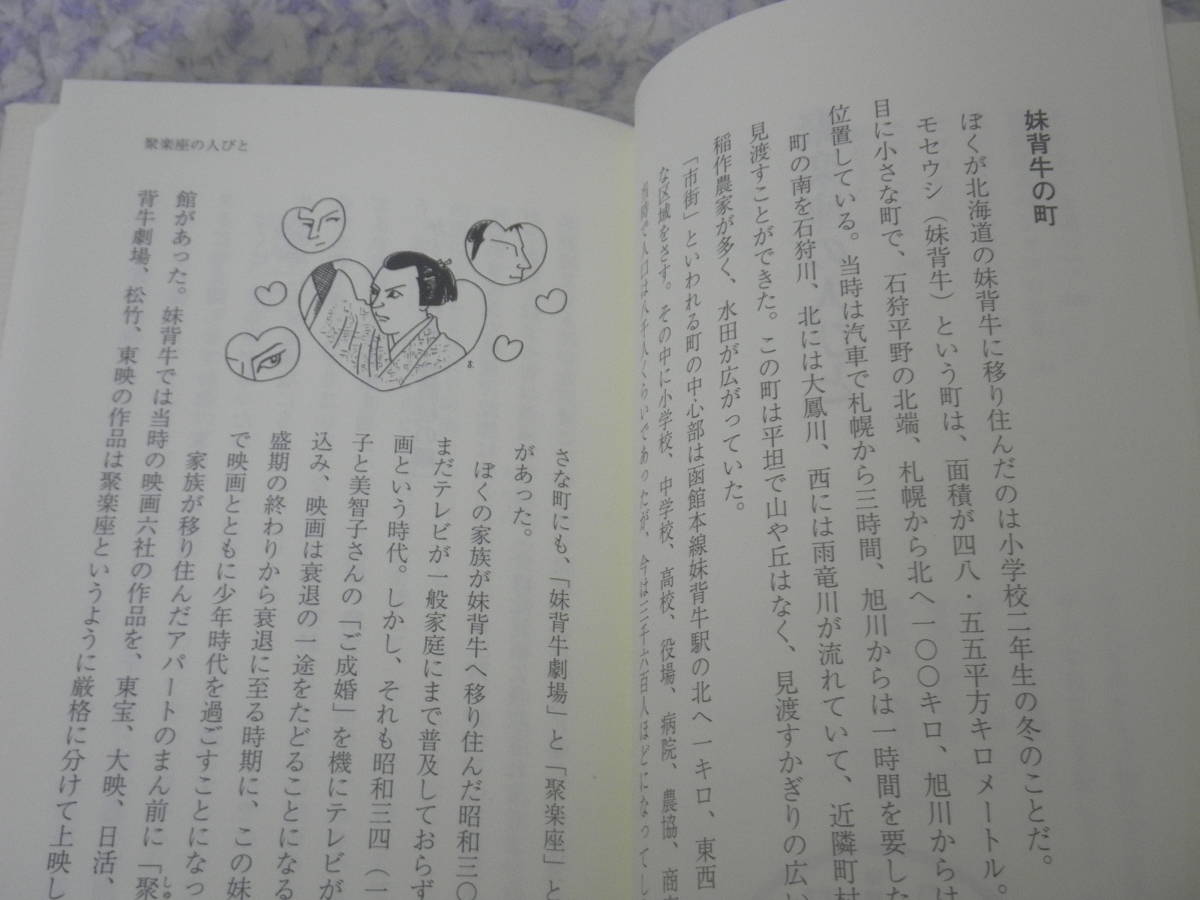 妹背牛の町
ぼくが北海道の妹背牛に移り住んだのは小学校二年生の冬のことだ。
モセウシ（妹背牛）という町は、面積が四八・五五平方キロメートル。
目に小さな町で、石狩平野の北端、札幌から北へ一〇〇キロ、旭川からは
位置している。当時は汽車で札幌から三時間、旭川からは一時間を要した
町の南を石狩川、北には大鳳川、西には雨竜川が流れていて、近隣町村
見渡すことができた。この町は平坦で山や丘はなく、見渡すかぎりの広い
稲作農家が多く、水田が広がっていた。
「市街」といわれる町の中心部は函館本線妹背牛駅の北へ一キロ、東西
な区域をさす。その中に小学校、中学校、高校、役場、病院、農協、商
当時で人口は八千人くらいであったが、今は三千六百人ほどになってし
聚楽座の人びと
さな町にも、「妹背牛劇場」と「聚楽座」と
があった。
ぼくの家族が妹背牛へ移り住んだ昭和三〇
まだテレビが一般家庭にまで普及しておらず
画という時代。しかし、それも昭和三四（一
子と美智子さんの「ご成婚」を機にテレビが
込み、映画は衰退の一途をたどることになる
盛期の終わりから衰退に至る時期に、この妹
で映画とともに少年時代を過ごすことになっ
家族が移り住んだアパートのまん前に「聚
館があった。妹背牛では当時の映画六社の作品を、東宝、大映、日活、
背牛劇場、松竹、東映の作品は聚楽座というように厳格に分けて上映し